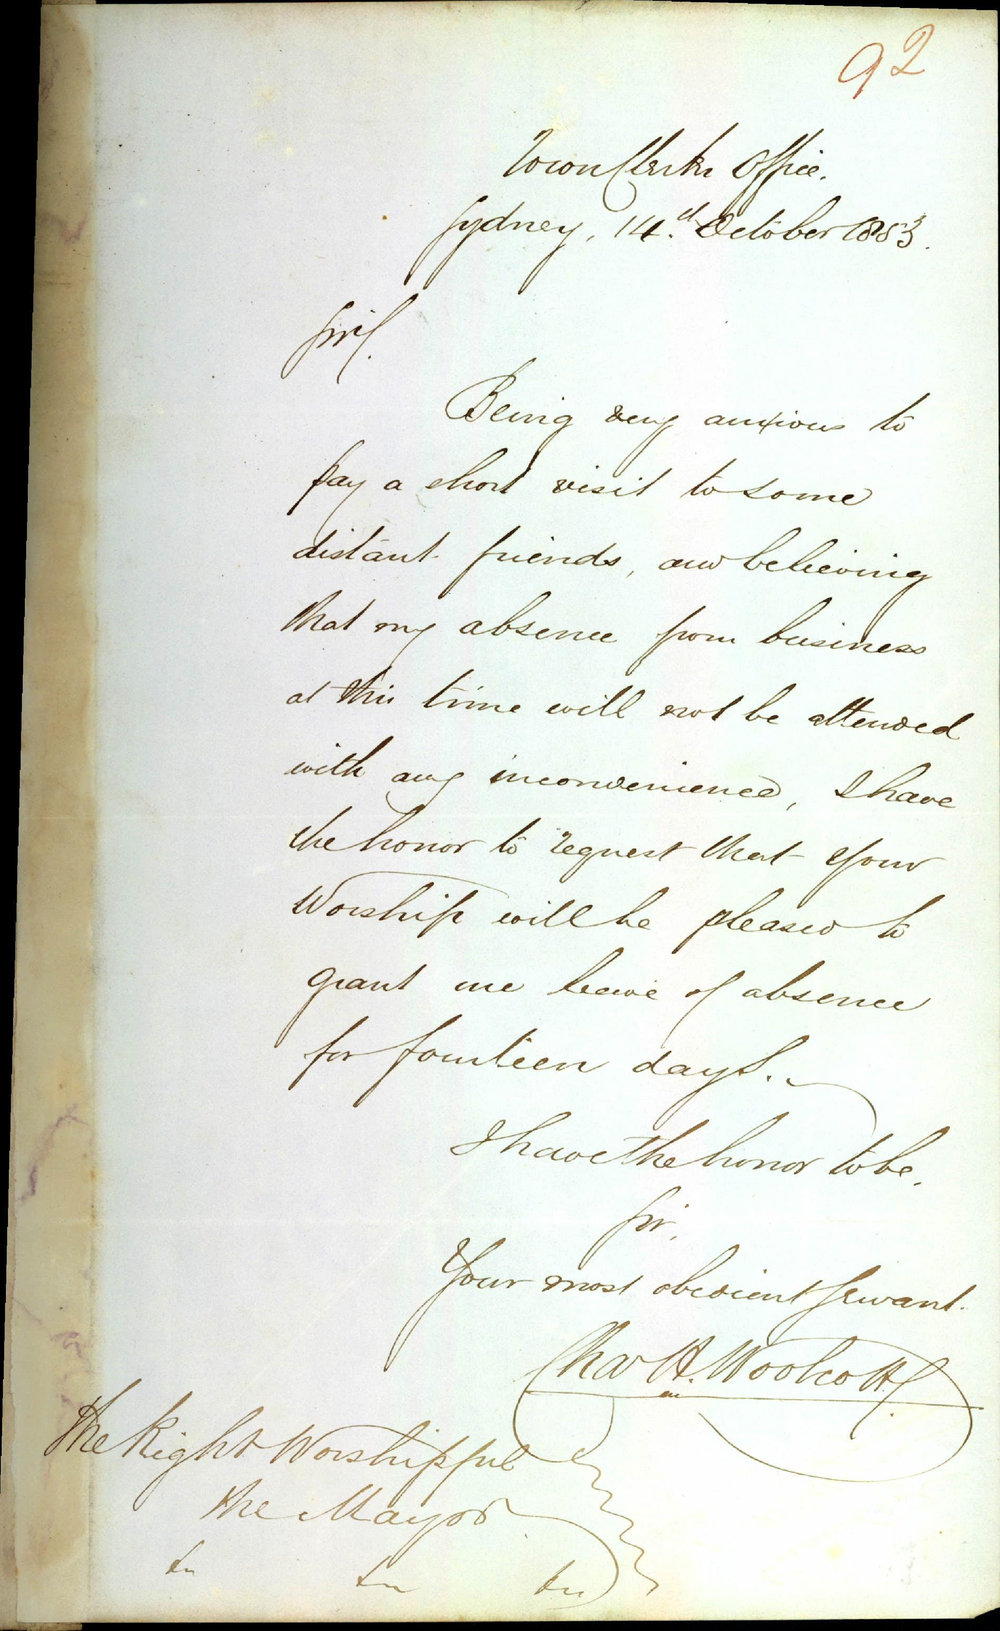 92
Town Clerks Office.
Sydney, 14th October 1883.
Sir,
Being very anxious to
pay a short visit to some
distant friends, and believing
that my absence from business
at this time will not be attended
with any inconvenience, I have
the honor to request that Your
Worship will be pleased to
grant me leave of absence
for fourteen days.
I have the honor to be,
Sir,
Your most obedient Servant.
Chas H. Woolcott
The Right Worshipful
the Mayor